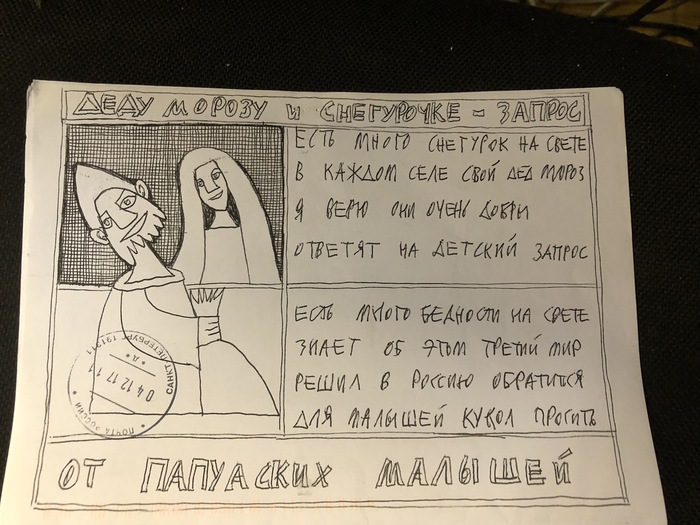 ДЕДУ МОРОЗУ И СНЕГУРОЧКЕ - ЗАПРОС
ЕСТЬ МНОГО СНЕГУРОК НА СВЕТЕ
В КАЖДОМ СЕЛЕ СВОЙ ДЕД МОРОЗ
Я ВЕРЮ ОНИ ОЧЕНЬ ДОБРИ
ОТВЕТЯТ НА ДЕТСКИЙ ЗАПРОС
ЕСТЬ МНОГО БЕДНОСТИ НА СВЕТЕ
ЗНАЕТ ОБ ЭТОМ ТРЕТИЙ МИР
РЕШИЛ В РОССИЮ ОБРАТИТСЯ
ДЛЯ МАЛЫШЕЙ КУКОЛ ПРОСИТЬ
САНКТ-ПЕТЕРБУРГ 191211
"Д"
04 12 17 11
ПОЧТА РОССИИ
ОТ ПАПУАСКИХ МАЛЫШЕЙ